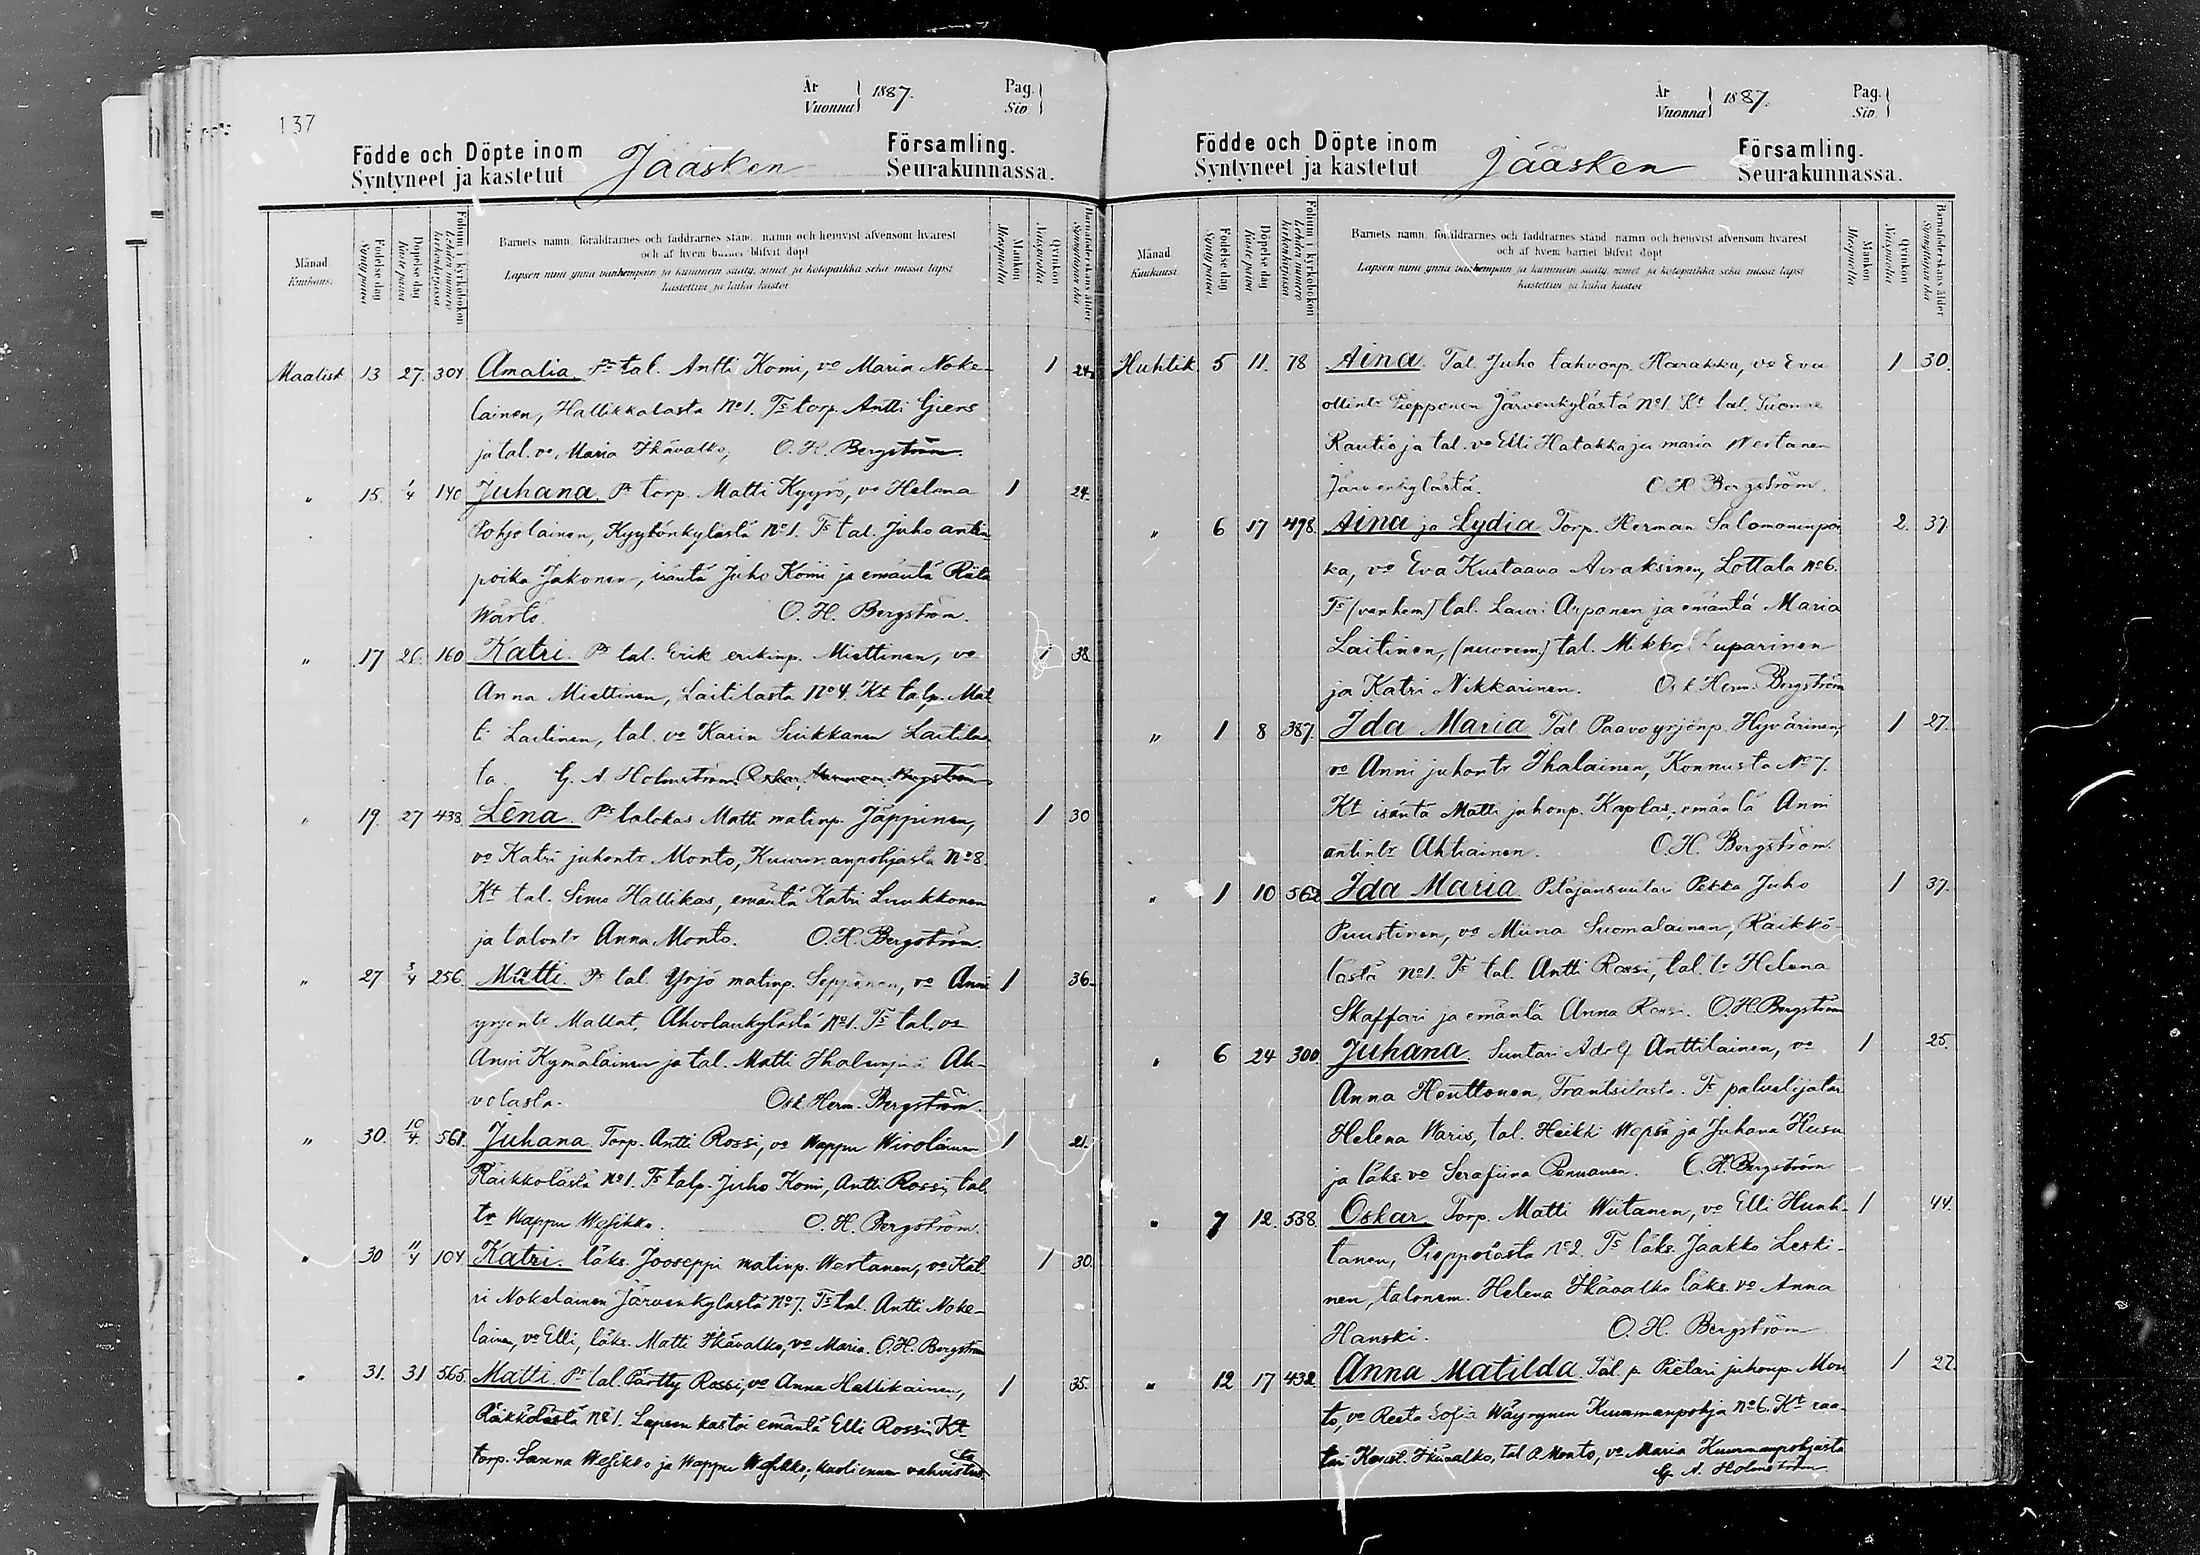 137
År Vuonna 1887. Pag. Siv.
Födde och Döpte inom Jääsken Församling.
Syntyneet ja kastetut Seurakunnassa.
Månad Kuukaus.
Födelsedag Syntypäivä
Döpelsedag Kastepäivä
Folium i kyrkoboken Lehden numero kirkonkirjassa
Barnets namn, föräldrarnes och faddrarnes stånd, namn och hemvist äfvensom hvarest
och af hvem barnet blifvit döpt
Lapsen nimi ynnä vanhempain ja kummein sääty, nimet ja kotopaikka sekä missä lapsi
kastettiin ja kuka kastoi
Mankön Miespuolta
Qvinkön Naispuolta
Barnaföderskans ålder Synnyttäjän ikä
Maalisk. 13 27. 304 Amalia. Ps tal. Antti Komi, vo Maria Noke- 1 24
lainen, Hallikkalasta No 1. Ts torp. Antti Gjers
ja tal. vo Maria Ikävalko, O. H. Bergström.
" 15. 1/4 140 Juhana. Ps torp. Matti Kyyrö, vo Helena 1 24.
Pohjolainen, Kyykönkylästä No 1. Ts tal. Juho antin
poika Jakonen, isäntä Juho Komi ja emäntä Riita
Wärtö. O. H. Bergström.
" 17 26. 160 Katri. Ps tal. Erik erikinp. Miettinen, vo 1 38
Anna Miettinen, Laitilasta No 4. Kt talp. Mat
ti Laitinen, tal. vo Karin Suikkanen Laitilas
ta. G. A. Holmström. Oskar Herman Bergström
" 19. 27 438. Lena. Ps talokas Matti matinp. Jäppinen, 1 30
vo Katri juhontr Monto, Kuurmanpohjasta No 8.
Kt tal. Simo Hallikas, emäntä Katri Luukkonen
ja talontr Anna Monto. O. H. Bergström.
" 27 3/4 256. Matti. Ps tal. Yrjö matinp. Seppänen, vo Anni 1 36.
yrjontr Mattat, Ahvolankylästä No 1. Ts tal. vo
Anni Kymäläinen ja tal. Matti Ah-
volasta. Osk. Herm. Bergström.
" 30. 10/4 561. Juhana. Torp. Antti Rossi, vo Wappu Wirolainen 1 21.
Räikkölästä No 1. Ts talp. Juho Komi, Antti Rossi, tal.
tr Wappu Wesikko. O. H. Bergström.
" 30 11/4 104 Katri. läks. Jooseppi matinp. Wertanen, vo Kat- 1 30.
ri Nokelainen Järvenkylästä No 7. Ts tal. Antti Noke-
lainen, vo Elli, läks. Matti Ikävalko, vo Maria. O. H. Bergström
" 31. 31 565. Matti. Ps tal. Pärtty Rossi, vo Anna Hallikainen, 1 35.
Räikkölästä No 1. Lapsen kastoi emäntä Elli Rossi. Kt
torp. Sanna Wesikko ja Wappu Wesikko; kuoli ennen vahvistus ta
År Vuonna 1887. Pag. Siv.
Födde och Döpte inom Jääsken Församling.
Syntyneet ja kastetut Seurakunnassa.
Månad Kuukausi.
Födelsedag Syntypäivä
Döpelsedag Kastepäivä
Folium i kyrkoboken Lehden numero kirkonkirjassa
Barnets namn, föräldrarnes och faddrarnes stånd, namn och hemvist äfvensom hvarest
och af hvem barnet blifvit döpt
Lapsen nimi ynnä vanhempain ja kummein sääty, nimet ja kotopaikka sekä missä lapsi
kastettiin ja kuka kastoi
Mankön Miespuolta
Qvinkön Naispuolta
Barnaföderskans ålder Synnyttäjän ikä
Huhtik. 5 11. 78 Aina. Tal. Juho tahvonp. Harakka, vo Eva 1 30.
ollintr Piepponen Järvenkylästä No 1. Kt tal. Tuomas
Rautio ja tal. vo Elli Hatakka ja maria Wertanen
Järvenkylästä. O. H. Bergström.
" 6 17 498. Aina ja Lydia Torp. Herman Salomoninpoi 2. 37.
ka, vo Eva Kustaava Airaksinen, Lottala No 6.
Ts (vanhem) tal. Lauri Arponen ja emäntä Maria
Laitinen, (nuorem) tal. Mikko Luparinen
ja Katri Nikkarinen. Osk Herm. Bergström
" 1 8 387. Ida Maria Tal. Paavo yrjönp. Hyvärinen, 1 27.
vo Anni juhontr Ihalainen, Konnusta No 7.
Kt isäntä Matti juhonp. Kaplas, emäntä Anni
antintr Ahtiainen. O. H. Bergström.
" 1 10 562 Ida Maria Pitäjänsuutari Pekka Juho 1 37.
Puustinen, vo Miina Suomalainen, Räikkö-
lästä No 1. Ts tal. Antti Rossi, tal. tr Helena
Skaffari ja emäntä Anna Rossi. O. H. Bergström
" 6 24 300. Juhana. Suutari Adolf Anttilainen, vo 1 25.
Anna Honttonen, Frantsilasta. Ts palvelijatar
Helena Waris, tal. Heikki Wepsä ja Juhana Husu
ja läks. vo Serafiina Pennanen. O. H. Bergström
" 7 12. 538. Oskar. Torp. Matti Wiitanen, vo Elli Hunh- 1 44.
tanen, No 2. Ts läks. Jaakko Leski-
nen, talonem. Helena Ikävalko läks. vo Anna
Hanski. O. H. Bergström
" 12 17 432 Anna Matilda Tal. p. Pietari juhonp. Mon 1 27
to, vo Reeta Sofia Wäyrynen Kuurmanpohja No 6. Kt raa-
tari Ikävalko, tal A. Monto, vo Maria Kuurmanpohjasta
G. A. Holmström.